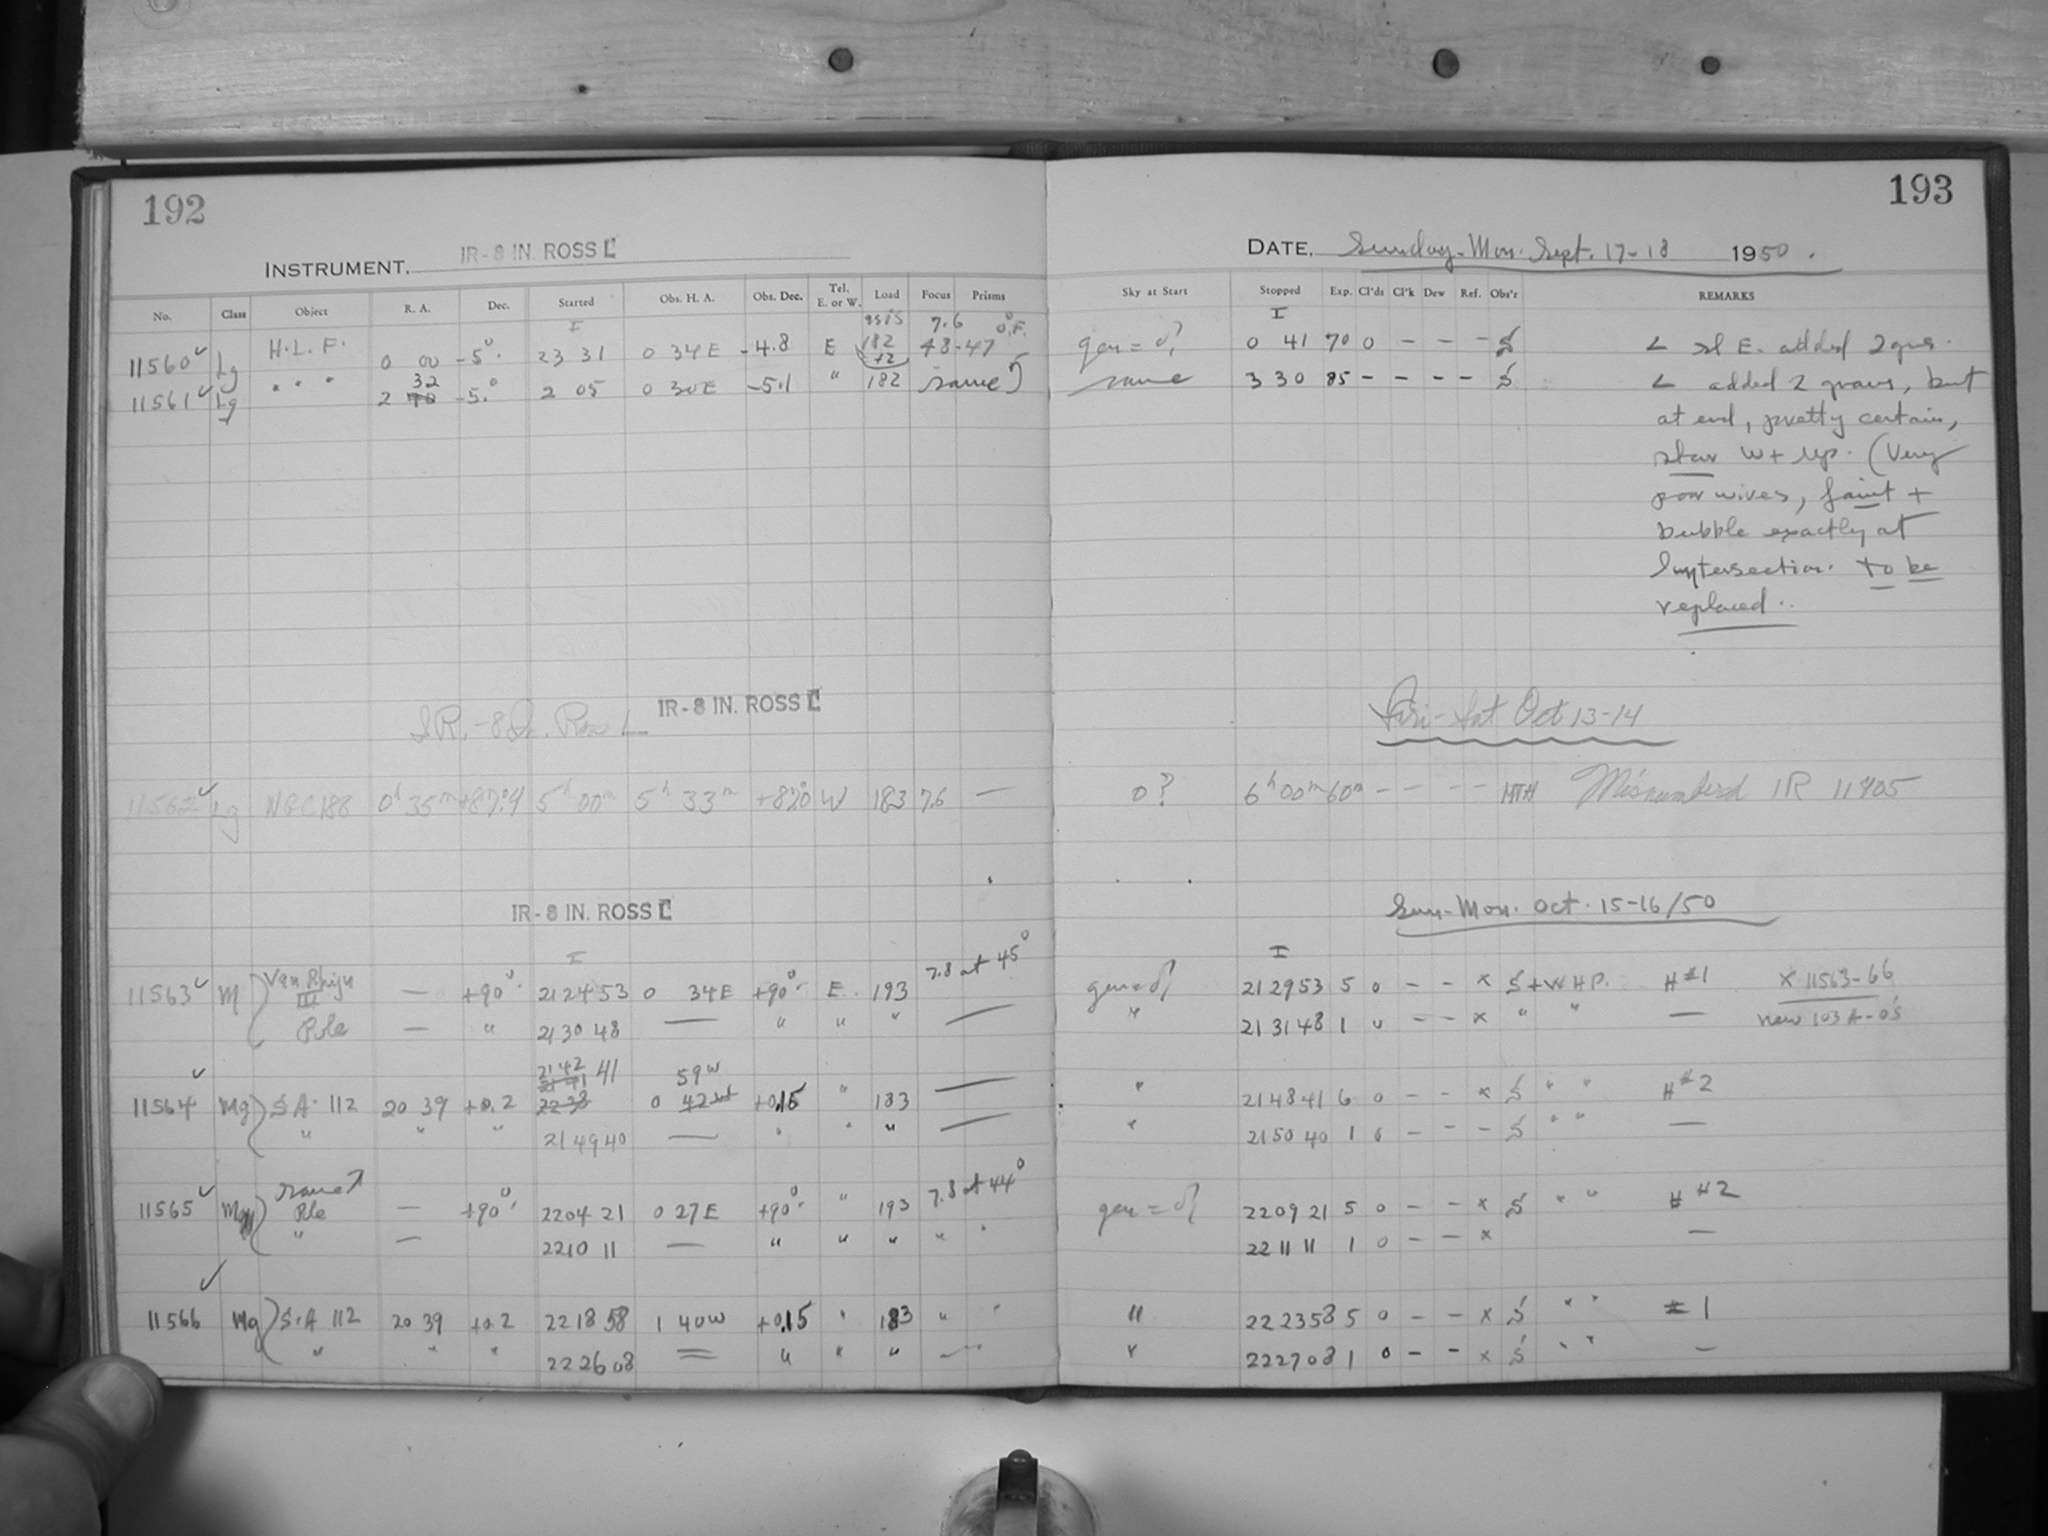 192
INSTRUMENT, IR-8 IN. ROSS
No. Class Object R. A. Dec. Started Obs. H. A. Obs. Dec. Tel. E. or W. Load Focus Prisms
I
11560 Lg H. L. F. 0 00 -5°. 23 31 0 34E -4.8 E 182 +2 7.6 48-47
11561 Lg " " " 2 32 -5.° 2 05 0 30E -5.1 " 182 same
I.R.-8 In. Ross L IR-8 IN. ROSS
11562 Lg NGC188 0h 35m +87°.4 5h 00m 5h 33m +87.0 W 183 7.6 —
IR-8 IN. ROSS
I
11563 M Van Rhijn III — +90°. 21 24 53 0 34E +90°. E. 193 7.8 at 45°
Pole — " 21 30 48 — " " " —
11564 Mg S.A. 112 20 39 +0.2 21 42 41 0 59W +0.15 " 183 —
" " " 21 49 40 — " " " —
11565 Mg same Pole — +90°. 22 04 21 0 27E +90°. " 193 7.8 at 44°
" — 22 10 11 — " " " " "
11566 Mg S.A 112 20 39 +0.2 22 18 58 1 40W +0.15 " 183 " "
" " " 22 26 08 — " " " —
193
DATE, Sunday-Mon. Sept. 17-18 1950.
Sky at Start Stopped Exp. Cl'ds Cl'k Dew Ref. Obs'r REMARKS
I
0 41 70 0 - - - S < sl E. added 2 grs.
same 3 30 85 - - - - S < added 2 grams, but
at end, pretty certain,
star W + up. (Very
poor wires, faint +
bubble exactly at
Intersection. to be
replaced..
Fri-Sat Oct 13-14
0? 6h 00m 60m - - - - HTH Misnumbered IR 11405
Sun-Mon. Oct. 15-16/50
I
21 29 53 5 0 - - x S+WHP. H#1 X 11563-66
" 21 31 48 1 0 - - x " " — new 103A-O's
" 21 48 41 6 0 - - x S " " H#2
" 21 50 40 1 0 - - - S " " —
22 09 21 5 0 - - x S " " H #2
22 11 11 1 0 - - x —
" 22 23 58 5 0 - - x S " " #1
" 22 27 08 1 0 - - x S " " —